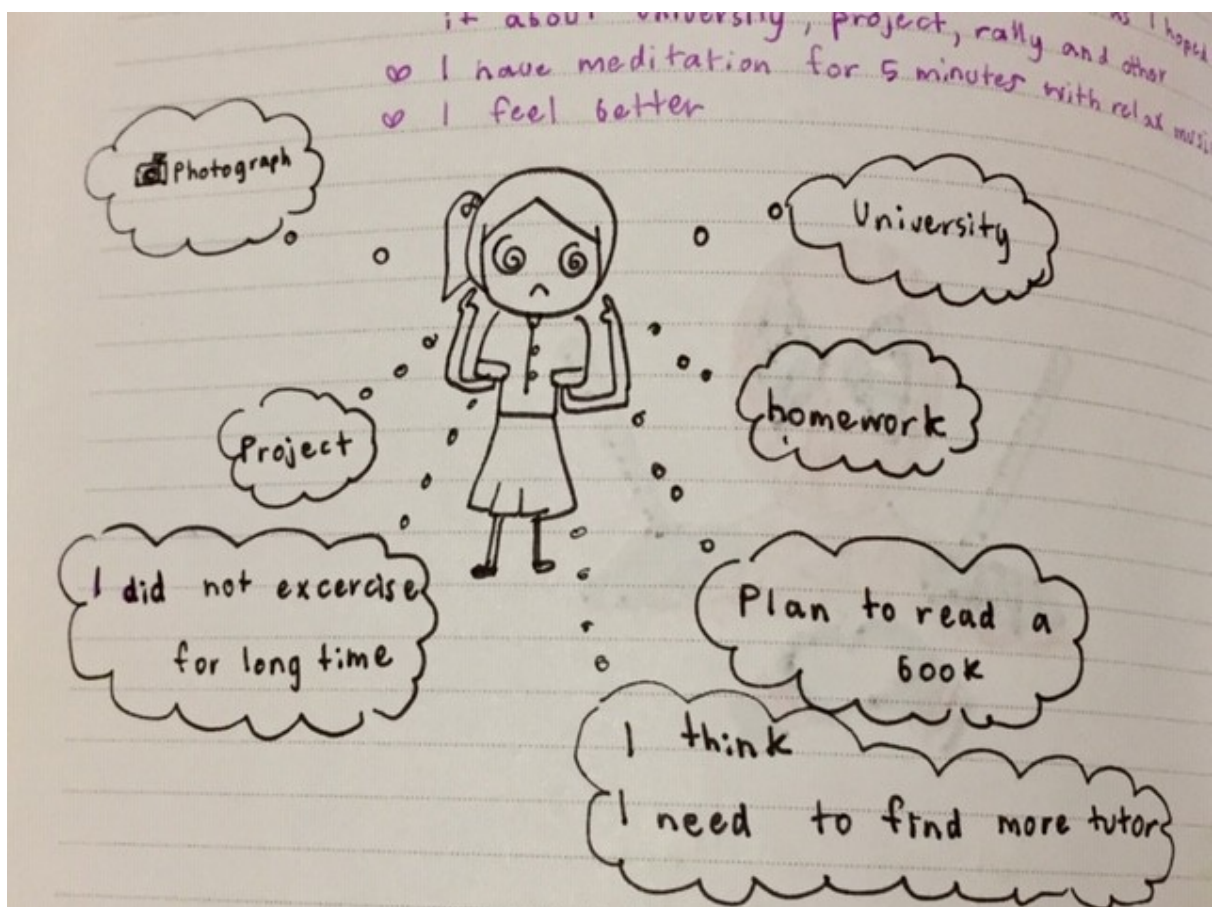 it about university, project, rally and other
I hoped
I have meditation for 5 minutes with relax
I feel better
Photograph
University
homework
Project
I did not excercise
for long time
Plan to read a
book
I think
I need to find more tutor